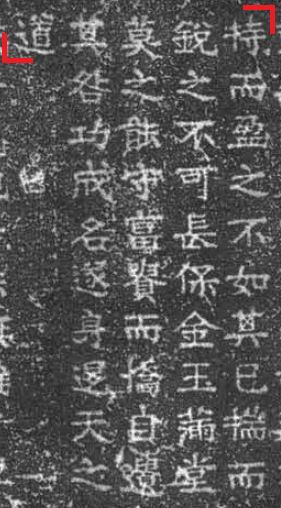 持而盈之不如其已揣而
銳之不可長保金玉滿堂
莫之能守富貴而憍自遺
其咎功成名遂身退天之
道